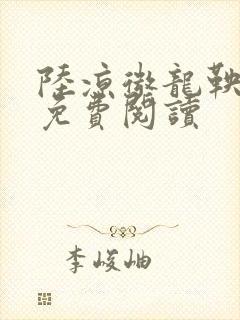 陸涼微龍鞅
免費閱讀
李峻岫